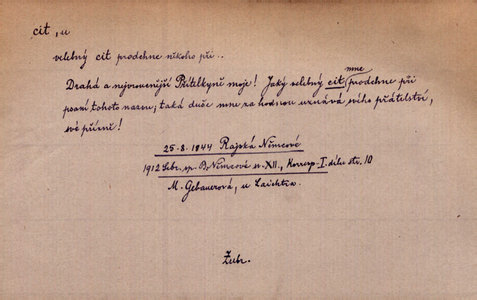 cit, u
velebný cit prodchne někoho při..
Drahá a nejvroucnější Přítelkyně moje! Jaký velebný cit mne prodchne při
psaní tohoto nazvu; taká duše mne za hodnou uznává svého přátelství,
své přízně!
25-8. 1844 Rajská Němcové
1912 Sebr. sp. B. Němcové sv. XII., Korresp. I. dílu str. 10
M. Gebauerová, u Laichtra.
Žubr.